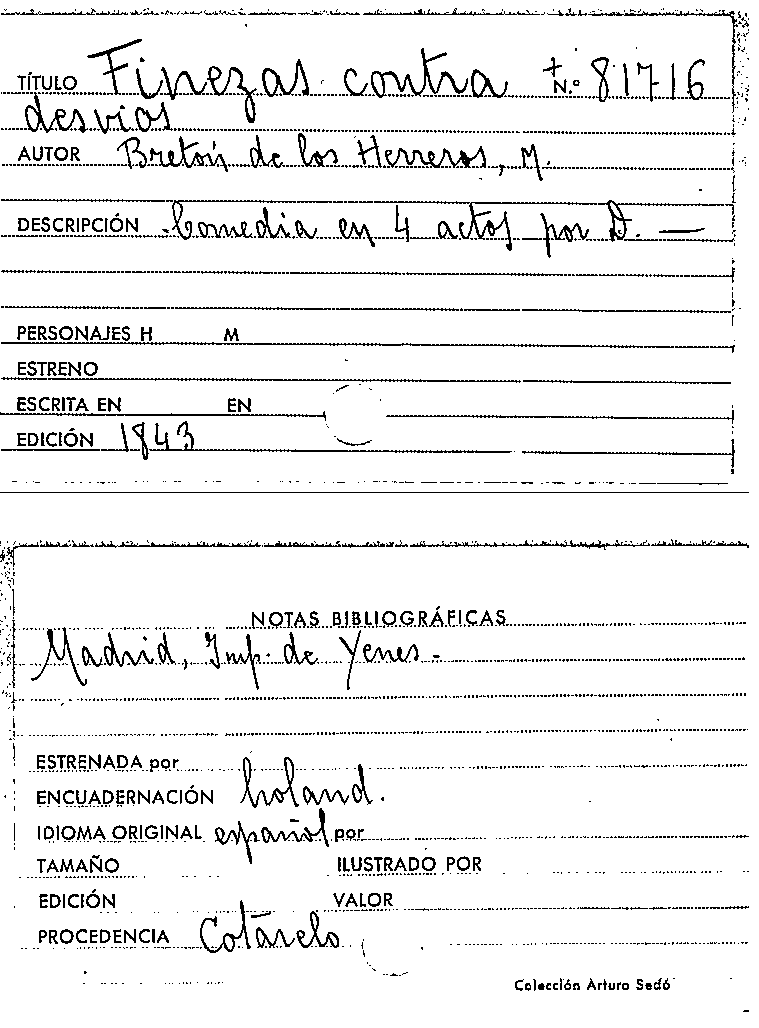 TÍTULO Finezas contra N.º 81716
desvios
AUTOR Bretón de los Herreros, M.
DESCRIPCIÓN Comedia en 4 actos por D. —
PERSONAJES H M
ESTRENO
ESCRITA EN EN
EDICIÓN 1843
NOTAS BIBLIOGRÁFICAS
Madrid, Imp. de Yenes.
ESTRENADA por
ENCUADERNACIÓN holand.
IDIOMA ORIGINAL español por
TAMAÑO ILUSTRADO POR
EDICIÓN VALOR
PROCEDENCIA Cotarelo
Colección Arturo Sedó